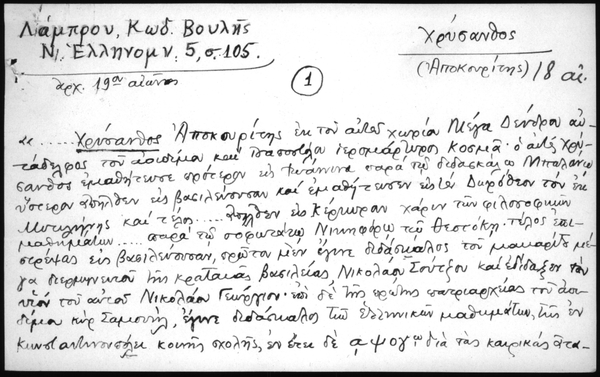 Λάμπρου, Κωδ. Βουλῆς
Ν. Ἑλληνομν. 5, σ. 105.
ἀρχ. 19ου αἰῶνος
Χρύσανθος
(Ἀποκουρίτης) 18 αἰ.
1
«...... Χρύσανθος Ἀποκουρίτης ἐκ τοῦ αὐτοῦ χωρίου Μέγα Δένδρου αὐ-
τάδελφος τοῦ ἀοιδίμου καὶ ἱερομάρτυρος Κοσμᾶ· ὁ αὐτὸς Χρύ-
σανθος ἐμαθήτευσε πρότερον εἰς Ἰωάννινα παρὰ τῷ διδασκάλῳ Μπαλάνῳ
ὕστερον ἀπῆλθεν εἰς βασιλεύουσαν καὶ ἐμαθήτευσεν εἰς τὸν Δωρόθεον τὸν ἐκ
Μυτιλήνης καὶ τέλος .... ἀπῆλθεν εἰς Κέρκυραν χάριν τῶν φιλοσοφικῶν
μαθημάτων .... παρὰ τῷ σοφωτάτῳ Νικηφόρῳ τῷ Θεοτόκῃ. τέλος ἐπι-
στρέψας εἰς βασιλεύουσαν, πρῶτον μὲν ἔγινε διδάσκαλος τοῦ μακαρίτου με-
γα διερμηνευτοῦ τῆς κραταιᾶς βασιλείας Νικολάου Σούτζου καὶ ἐδίδαξεν τὸν
υἱὸν τοῦ αὐτοῦ Νικολάου Γεώργιον· ἐπὶ δὲ τῆς πρώτης πατριαρχείας τοῦ ἀοι-
δίμου κὺρ Σαμουήλ, ἔγινε διδάσκαλος τῶν ἑλληνικῶν μαθημάτων, τῆς ἐν
Κωνσταντινουπόλει κοινῆς σχολῆς, ἐν ἔτει δὲ ͵αψογʹ, διὰ τὰς καιρικὰς ἀτα-